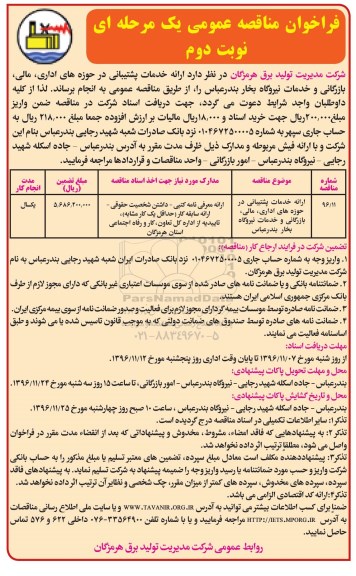 فراخوان مناقصه عمومی یک مرحله ای
نوبت دوم
شرکت مدیریت تولید برق هرمزگان در نظر دارد ارائه خدمات پشتیبانی در حوزه های اداری، مالی،
بازرگانی و خدمات نیروگاه بخار بندرعباس را، از طریق مناقصه عمومی به انجام برساند. لذا از کلیه
داوطلبان واجد شرایط دعوت می گردد، جهت دریافت اسناد شرکت در مناقصه ضمن واریز
مبلغ ۲۰۰،۰۰۰ریال جهت خرید اسناد و ۱۸،۰۰۰ریال مالیات بر ارزش افزوده جمعا مبلغ ۲۱۸،۰۰۰ ریال به
حساب جاری سپهر به شماره ۰۱۰۴۶۷۲۵۰۰۰۰۵ نزد بانک صادرات شعبه شهید رجایی بندرعباس بنام این
شرکت و با ارائه فیش مربوطه و مدارک ذیل ظرف مدت مقرر به آدرس بندرعباس - جاده اسکله شهید
رجایی - نیروگاه بندرعباس - امور بازرگانی - واحد مناقصات و قراردادها مراجعه فرمایید.
شماره مناقصه | موضوع مناقصه | مدارک مورد نیاز جهت اخذ اسناد مناقصه | مبلغ تضمین (ریال) | مدت انجام کار
۹۶/۱۱ | ارائه خدمات پشتیبانی در حوزه های اداری، مالی، بازرگانی و خدمات نیروگاه بخار بندرعباس | ارائه معرفی نامه کتبی - داشتن شخصیت حقوقی - ارائه سابقه کار (حداقل یک کار مشابه)، تاییدیه از اداره کل تعاون، کار و رفاه اجتماعی استان هرمزگان | ۵،۶۸۶،۲۰۰،۰۰۰ | یکسال
تضمین شرکت در فرایند ارجاع کار (مناقصه):
۱. واریز وجه به شماره حساب جاری ۰۱۰۴۶۷۲۵۰۰۰۰۵ نزد بانک صادرات ایران شعبه شهید رجایی بندرعباس به نام
شرکت مدیریت تولید برق هرمزگان.
۲. ضمانتنامه بانکی و یا ضمانت نامه های صادر شده از سوی موسسات اعتباری غیربانکی که دارای مجوز لازم از طرف
بانک مرکزی جمهوری اسلامی ایران هستند.
۳. ضمانت نامه صادره توسط موسسات بیمه گر دارای مجوز لازم برای فعالیت و صدور ضمانت نامه از سوی بیمه مرکزی ایران.
۴. ضمانت نامه های صادره توسط صندوق های ضمانت دولتی که به موجب قانون تاسیس شده یا می شوند و طبق
اساسنامه فعالیت می نمایند.
مهلت دریافت اسناد:
از روز شنبه مورخ ۱۳۹۶/۱۱/۰۷ تا پایان وقت اداری روز پنجشنبه مورخ ۱۳۹۶/۱۱/۱۲.
محل و مهلت تحویل پاکات پیشنهادی:
بندرعباس - جاده اسکله شهید رجایی - نیروگاه بندرعباس - امور بازرگانی، تا ساعت ۱۵ روز سه شنبه مورخ ۱۳۹۶/۱۱/۲۴
محل و تاریخ گشایش پاکات پیشنهادی:
بندرعباس - جاده اسکله شهید رجایی - نیروگاه بندرعباس، ساعت ۱۰ صبح روز چهارشنبه مورخ ۱۳۹۶/۱۱/۲۵.
تذکر۱: سایر اطلاعات تکمیلی در اسناد مناقصه درج گردیده است.
تذکر ۲: به پیشنهادهایی که فاقد امضاء، مشروط، مخدوش و پیشنهاداتی که بعد از انقضاء مدت مقرر در فراخوان
واصل می شود، مطلقا ترتیب اثر داده نخواهد شد.
تذکر۳: پیشنهاددهنده مکلف است معادل مبلغ سپرده، تضمین های معتبر تسلیم یا مبلغ مذکور را به حساب بانکی
شرکت واریز و حسب مورد ضمانتنامه یا رسید واریز وجه را ضمیمه پیشنهاد به شرکت تسلیم نماید. به پیشنهادهای فاقد
سپرده، سپرده های مخدوش، سپرده های کمتر از میزان مقرر، چک شخصی و نظایر آن ترتیب اثر داده نخواهد شد.
تذکر۴: ارائه کد اقتصادی الزامی می باشد.
ضمنا برای کسب اطلاعات بیشتر می توانید به آدرس WWW.TAVANIR.ORG.IR و یا سایت ملی اطلاع رسانی مناقصات
به آدرس HTTP://IETS.MPORG.IR مراجعه فرمایید و یا با شماره تلفن ۳۳۵۶۴۹۰۰-۰۷۶ داخلی ۶۲۲ و ۵۷۶ تماس
حاصل نمایید.
روابط عمومی شرکت مدیریت تولید برق هرمزگان
ParsNamadData
۰۲۱-۸۸۳۴۹۶۷۰-۵